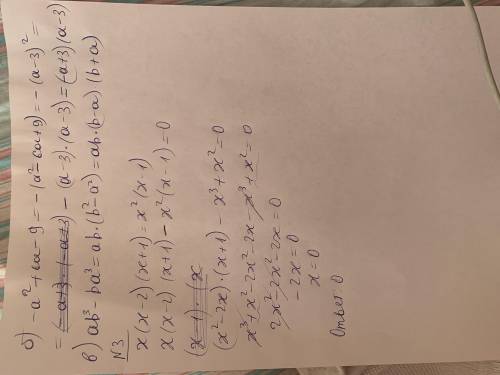 б) -a² + 6a - 9 = -(a² - 6a + 9) = -(a - 3)² =
= (-a+3)·(-a+3) - (a-3)·(a-3) = (-a+3)(a-3)
в) ab³ - ba³ = ab·(b² - a²) = ab·(b-a)(b+a)
N3
x(x-2)(x+1) = x²(x-1)
x(x-2)(x+1) - x²(x-1) = 0
(x-1)·(x
(x²-2x)·(x+1) - x³ + x² = 0
x³ + x² - 2x² - 2x - x³ + x² = 0
2x² - 2x² - 2x = 0
-2x = 0
x = 0
Ответ: 0